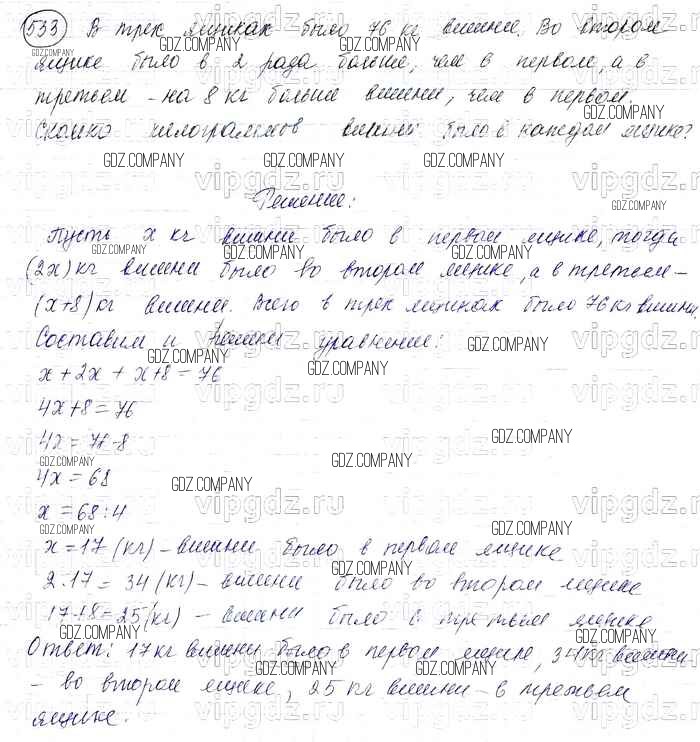 533 В трех ящиках было 76 кг вишни. Во втором
ящике было в 2 раза больше, чем в первом, а в
третьем - на 8 кг больше вишни, чем в первом.
Сколько килограммов вишни было в каждом ящике?
Решение:
Пусть x кг вишни было в первом ящике, тогда
(2x) кг вишни было во втором ящике, а в третьем -
(x+8) кг вишни. Всего в трех ящиках было 76 кг вишни.
Составим и решим уравнение:
x + 2x + x+8 = 76
4x+8 = 76
4x = 76-8
4x = 68
x = 68:4
x = 17 (кг) - вишни было в первом ящике
2·17 = 34 (кг) - вишни было во втором ящике
17+8 = 25 (кг) - вишни было в третьем ящике
Ответ: 17 кг вишни было в первом ящике, 34 кг вишни
- во втором ящике, 25 кг вишни - в третьем
ящике.
GDZ.COMPANY
vipgdz.ru